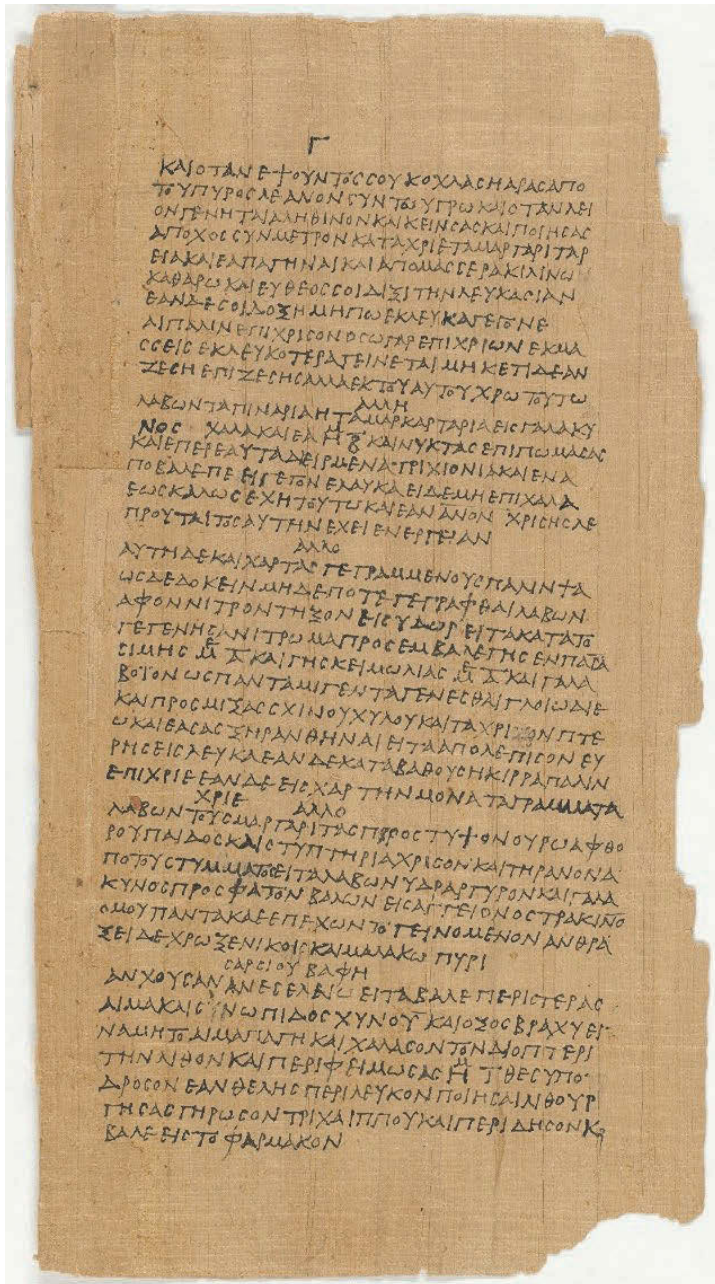 Γ
ΚΑΙΟΤΑΝΕΨΟΥΝΤΟΣΣΟΥΚΟΧΛΑΣΗΑΡΑΣΑΠΟ
ΤΟΥΠΥΡΟΣΛΕΑΝΟΝΣΥΝΤΩΥΓΡΩΚΑΙΟΤΑΝΛΕΙ
ΟΝΓΕΝΗΤΑΙΑΛΗΘΙΝΟΝΚΑΙΚΕΙΝΣΑΣΚΑΙΠΟΙΗΣΑΣ
ΑΠΟΧΟΣΣΥΝΜΕΤΡΟΝΚΑΤΑΧΡΙΕΤΑΜΑΡΓΑΡΙΤΑΡ
ΕΙΑΚΑΙΕΑΠΑΓΗΝΑΙΚΑΙΑΠΟΜΑΣΣΕΡΑΚΙΛΙΝΩ
ΚΑΘΑΡΩΚΑΙΕΥΘΕΟΣΣΟΙΔΙΞΙΤΗΝΛΕΥΚΑΣΙΑΝ
ΕΑΝΔΕΣΟΙΔΟΞΗΜΗΠΩΕΚΛΕΥΚΑΓΕΓΟΝΕ
ΑΙΠΑΛΙΝΕΠΙΧΡΙΣΟΝΟΣΩΓΑΡΕΠΙΧΡΙΩΝΕΚΜΑ
ΣΣΕΙΣΕΚΛΕΥΚΟΤΕΡΑΓΕΙΝΕΤΑΙΜΗΚΕΤΙΔΕΑΝ
ΖΕΣΗΕΠΙΖΕΣΗΣΑΛΛΑΕΚΤΟΥΑΥΤΟΥΧΡΩΤΟΥΤΩ
ΑΛΛΗ
ΛΑΒΩΝΤΑΠΙΝΑΡΙΑΗΤΑΜΑΡΚΑΡΤΑΡΙΑΕΙΣΓΑΛΑΚΥ
ΝΟΣ ΧΑΛΑΚΑΙΕΑ ΚΑΙΝΥΚΤΑΣΕΠΙΠΩΜΑΣΑΣ
ΚΑΙΕΠΕΡΕΑΥΤΑΔΕΙΡΜΕΝΑΤΡΙΧΙΟΝΙΑΚΑΙΕΝΑ
ΠΟΒΑΛΕΠΕΕΙΓΕΓΟΝΕΛΑΥΚΑΕΙΔΕΜΗΕΠΙΧΑΛΑ
ΕΩΣΚΑΛΩΣΕΧΗΤΟΥΤΩΚΑΙΕΑΝΑΝΟΝ ΧΡΙΣΗΣΛΕ
ΠΡΟΥΤΑΙΤΟΣΑΥΤΗΝΕΧΕΙΕΝΕΡΓΕΙΑΝ
ΑΛΛΟ
ΑΥΤΗΔΕΚΑΙΧΑΡΤΑΣΓΕΓΡΑΜΜΕΝΟΥΣΠΑΛΙΝΨΑ
ΩΣΔΕΔΟΚΕΙΝΜΗΔΕΠΟΤΕΓΕΓΡΑΦΘΑΙΛΑΒΩΝ
ΑΦΟΝΝΙΤΡΟΝΤΗΞΟΝΕΙΣΥΔΩΡΕΙΤΑΚΑΤΑΤΟ
ΓΕΓΕΝΗΣΑΝΙΤΡΩΜΑΠΡΟΣΕΜΒΑΛΕΓΗΣΕΝΠΑΤΑ
ΣΙΜΗΣ Μ Α ΚΑΙΓΗΣΚΕΙΜΩΛΙΑΣ Μ Α ΚΑΙΓΑΛΑ
ΒΟΙΟΝΩΣΠΑΝΤΑΜΙΓΕΝΤΑΓΕΝΕΣΘΑΙΓΛΟΙΩΔΙΕ
ΚΑΙΠΡΟΣΜΙΞΑΣΣΧΙΝΟΥΧΥΛΟΥΚΑΙΤΑΧΡΙΖΟΝΠΤΕ
ΩΚΑΙΕΑΣΑΣΞΗΡΑΝΘΗΝΑΙΕΙΤΑΑΠΟΛΕΠΙΣΟΝΕΥ
ΡΗΣΕΙΣΛΕΥΚΑΕΑΝΔΕΚΑΤΑΒΑΘΟΥΣΗΚΙΡΡΑΠΑΛΙΝ
ΕΠΙΧΡΙΕΕΑΝΔΕΕΙΣΧΑΡΤΗΝΜΟΝΑΤΑΓΡΑΜΜΑΤΑ
ΧΡΙΕ ΑΛΛΟ
ΛΑΒΩΝΤΟΥΣΜΑΡΓΑΡΙΤΑΣΠΡΟΣΤΥΨΟΝΟΥΡΩΑΦΘΟ
ΡΟΥΠΑΙΔΟΣΚΑΙΣΤΥΠΤΗΡΙΑΧΡΙΣΟΝΚΑΙΤΗΡΑΝΟΝΑ
ΠΟΤΟΥΣΤΥΜΜΑΤΟΣΕΙΤΑΛΑΒΩΝΥΔΡΑΡΓΥΡΟΝΚΑΙΓΑΛΑ
ΚΥΝΟΣΠΡΟΣΦΑΤΟΝΒΑΛΩΝΕΙΣΑΓΓΕΙΟΝΟΣΤΡΑΚΙΝΟ
ΟΜΟΥΠΑΝΤΑΚΑΕΕΠΕΧΩΝΤΟΓΕΙΝΟΜΕΝΟΝΑΝΘΡΑ
ΞΕΙΔΕΧΡΩΞΕΝΙΚΟΙΣΚΑΙΜΑΛΑΚΩΠΥΡΙ
ΣΑΡΣΙΟΥΒΑΦΗ
ΑΝΧΟΥΣΑΝΑΝΕΣΕΛΕΙΩΕΙΤΑΒΑΛΕΠΕΡΙΣΤΕΡΑΣ
ΑΙΜΑΚΑΙΣΙΝΩΠΙΔΟΣΧΥΝΟΥΚΑΙΟΞΟΣΒΡΑΧΥΕΙΓ
ΝΑΜΗΤΟΑΙΜΑΠΑΓΗΚΑΙΧΑΛΑΣΟΝΤΟΝΔΙΟΠΤΕΡΙ
ΤΗΝΛΙΘΟΝΚΑΙΠΕΡΙΦΕΙΜΩΣΑΣ Η Γ ΘΕΣΥΠΟ
ΔΡΟΣΟΝΕΑΝΘΕΛΗΣΠΕΡΙΛΕΥΚΟΝΠΟΙΗΣΑΙΛΙΘΟΥΡ
ΓΗΣΑΣΠΗΡΩΣΟΝΤΡΙΧΑΙΠΠΟΥΚΑΙΠΕΡΙΔΗΣΟΝΚ
ΒΑΛΕΕΙΣΤΟΦΑΡΜΑΚΟΝ